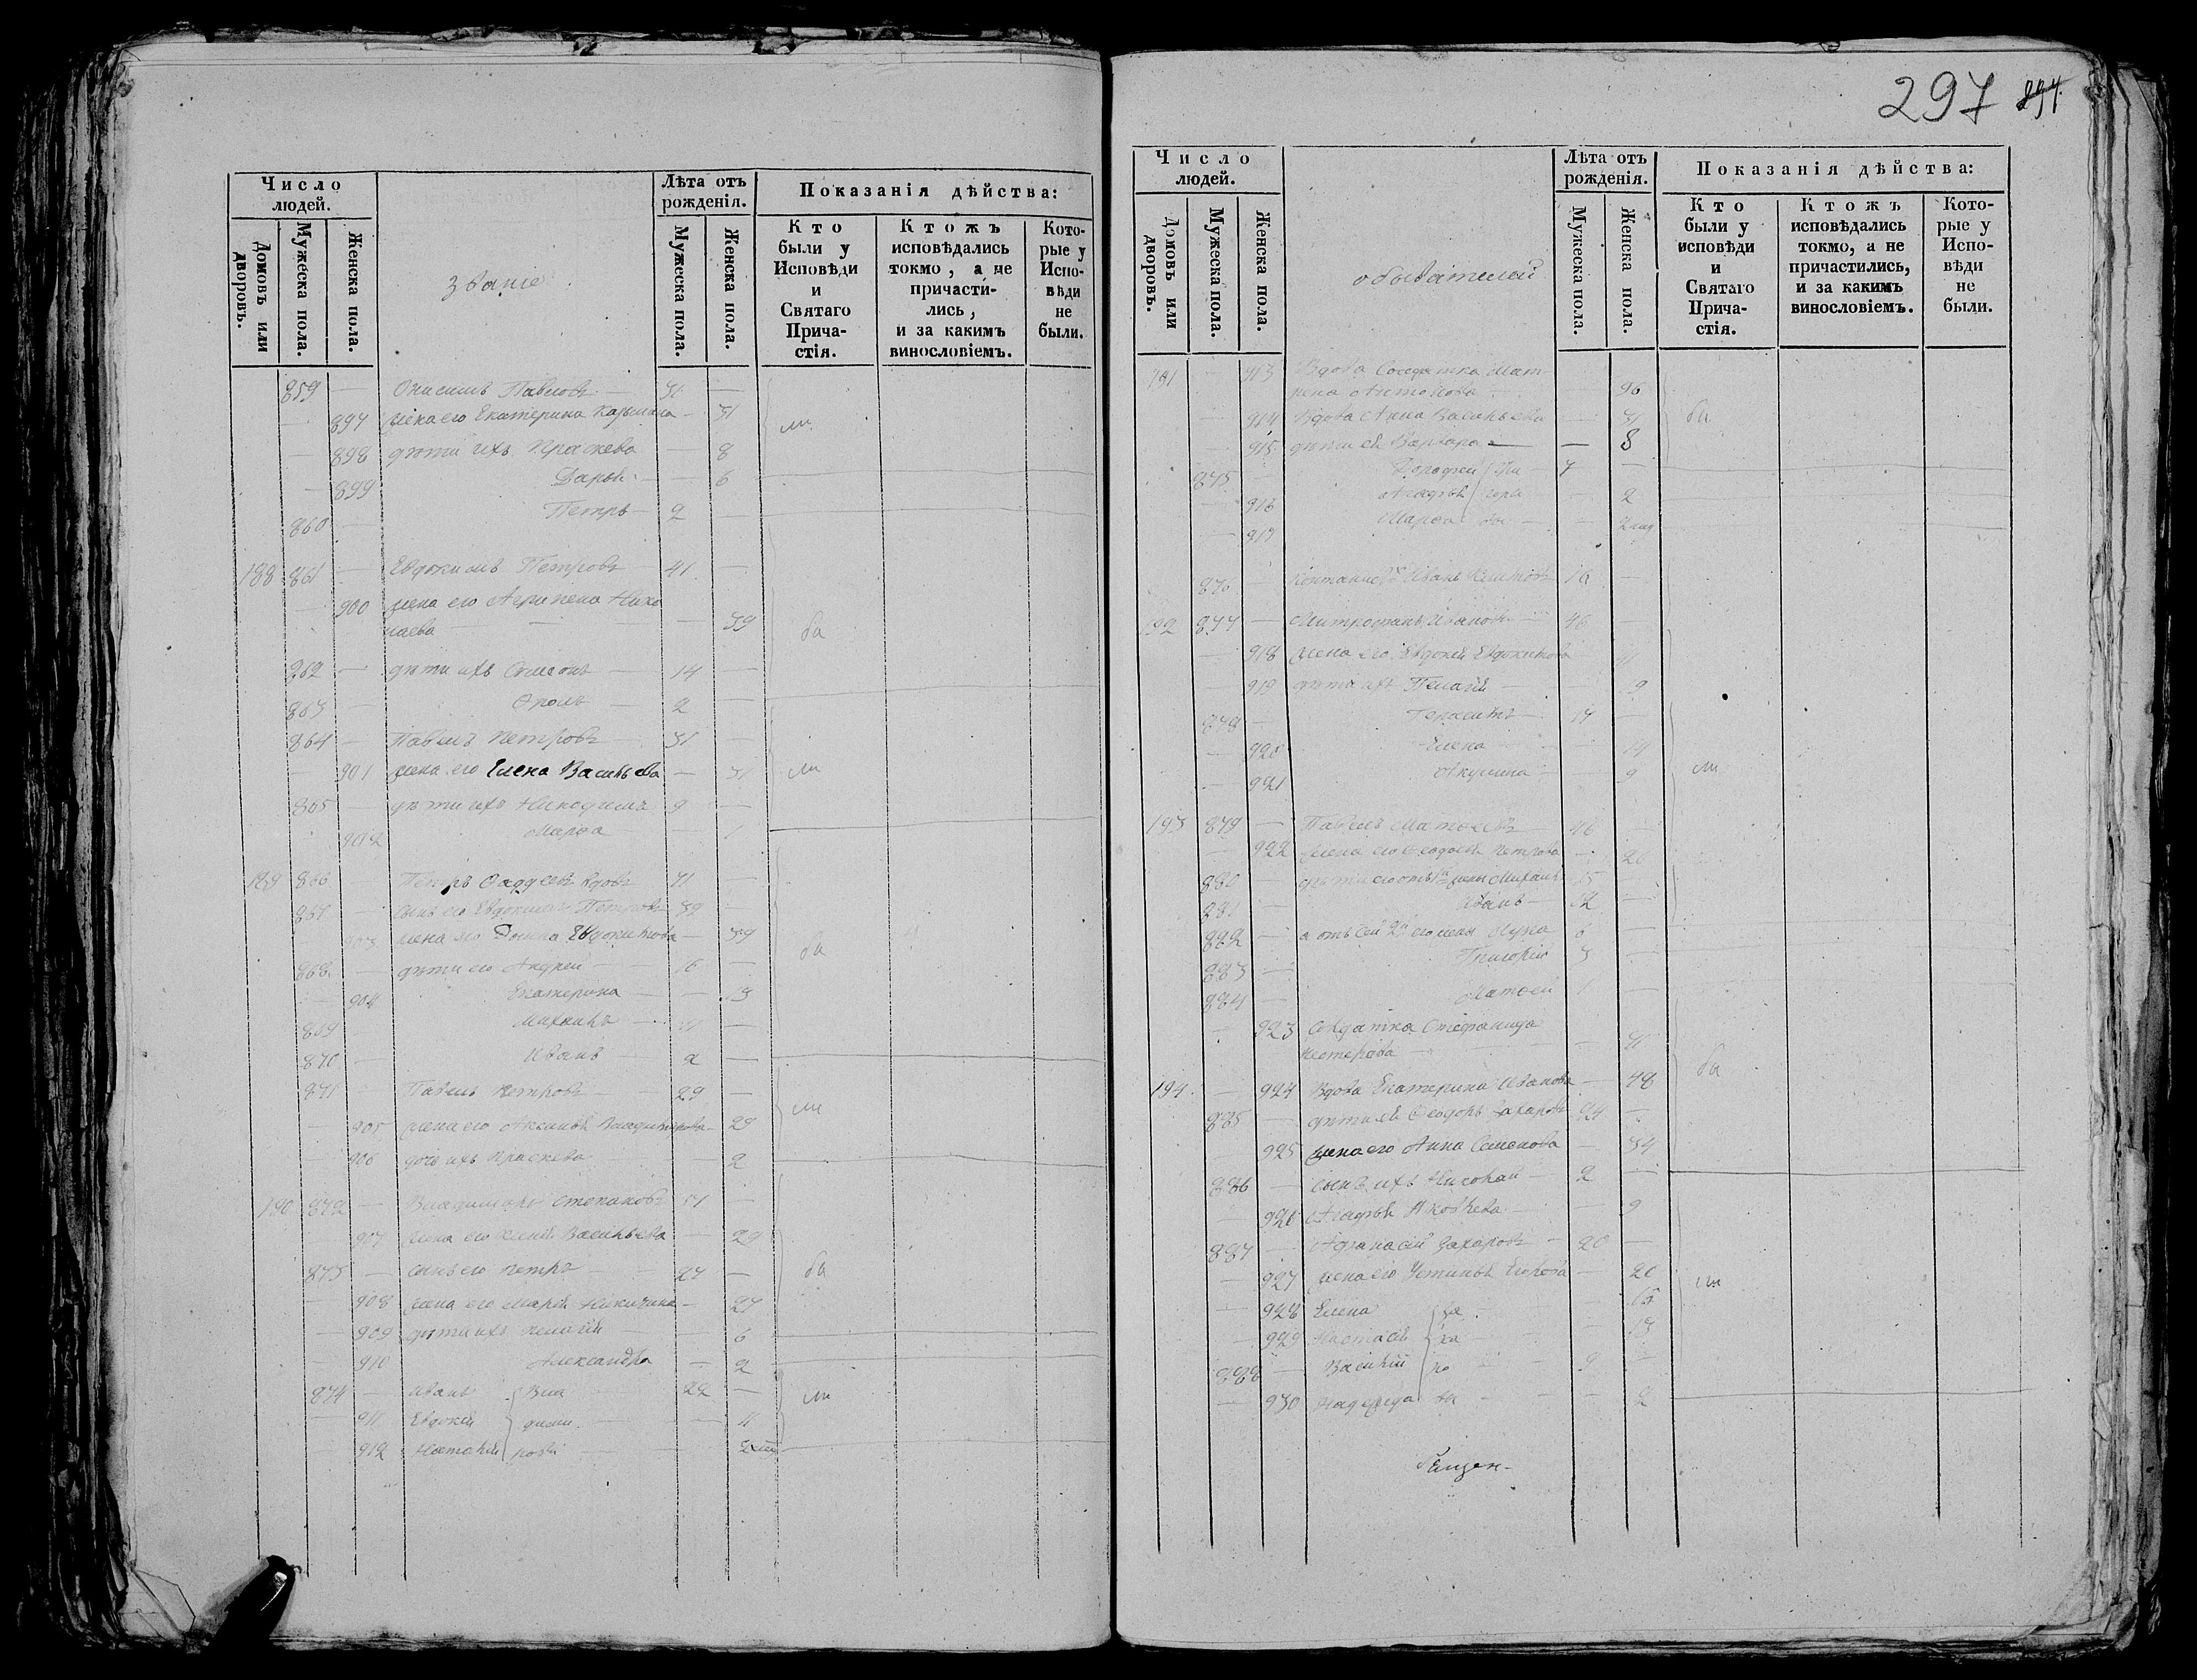 Число людей.
Домовъ или дворовъ.
Мужеска пола.
Женска пола.
званіе
Лѣта отъ рожденія.
Мужеска пола.
Женска пола.
Показанія дѣйства:
Кто были у Исповѣди и Святаго Прича-стія.
Ктожъ исповѣдались токмо, а не причасти-лись, и за какимъ винословіемъ.
Кото-рые у Испо-вѣди не были.
859 — Онисимъ Павловъ — 31 —
— 897 жена его Екатерина — 31
— 898 дѣти ихъ Праскева — 8
— 899 Дарья — 6
860 — Петръ — 2 —
188 861 — Евдокимъ Петровъ — 41 —
— 900 жена его Агрипена Нико
лаева — — 39 бы
862 — дѣти ихъ Симеонъ — 14 —
863 — Фролъ — 2 —
864 — Павелъ Петровъ — 31 —
— 901 жена его Елена Васильева — 31 ли
865 — дѣти ихъ Никодимъ 9 —
902 Марѳа — 1
189 866 — Петръ Фаддеевъ вдовъ 71 —
867 — сынъ его Евдокимъ Петровъ 39 —
903 жена его Евдокимова — 39 бы
868 — дѣти его Андрей — 16 —
— 904 Екатерина — — 13
869 — Михаилъ — 11 —
870 — Иванъ — 2 —
871 — Павелъ Петровъ — 29 —
— 905 жена его Аксинья Владимирова — 29 ли
— 906 дочь ихъ Праскева — 2
190 872 — Владимиръ Степановъ 51 —
— 907 жена его Васильева — 29
873 — сынъ его Петръ — 27 — бы
— 908 жена его Марья Никитина — 27
— 909 дѣти ихъ Пелагія — 6
— 910 Александра — 2
874 — Иванъ Вла — 22 — ли
— 911 Евдокія дими — 11
— 912 Наталія ровы —
297
894
Число людей.
Домовъ или дворовъ.
Мужеска пола.
Женска пола.
обывателей
Лѣта отъ рожденія.
Мужеска пола.
Женска пола.
Показанія дѣйства:
Кто были у исповѣди и Святаго Прича-стія.
Ктожъ исповѣдались токмо, а не причастились, и за какимъ винословіемъ.
Кото-рые у Испо-вѣди не были.
191 — 913 Вдова Солдатка Мат-
рена Антонова — 96
— 914 Вдова Анна Васильева — 31 бы
— 915 дѣти ея Варвара — — 8
875 — 7 —
— 916 Агафья — 2
— 917 Марѳа —
876 — Иванъ 16 —
192 877 — Митрофанъ Ивановъ — 46 —
— 918 жена его Евдокія Евдокимова
— 919 дѣти ихъ Пелагія — 9
878 — Герасимъ — 17 —
— 920 Елена — 14
— 921 Акулина — 9 ли
193 879 — Павелъ Матѳеевъ 46 —
— 922 жена его Ѳеодосія Петрова — 26
880 — дѣти его отъ 1й жены Михаилъ 15 —
881 — Иванъ — 12 —
882 — а отъ сей 2й его жены Лука 6 —
883 — Григорій 3 —
884 — Матѳей 1 —
— 923 Солдатка Стефанида
Нестерова — — 41
194 — 924 Вдова Екатерина Иванова — 48 бы
885 — дѣти ея Ѳеодоръ Захаровъ 24 —
— 925 жена его Анна Семенова — 34
886 — сынъ ихъ Николай — 2 —
— 926 Агафья Яковлева — 9
887 — Афанасій Захаровъ — 20 —
— 927 жена его Устинья Егорова — 20 ли
— 928 Елена за — 15
— 929 Настасія ха — 13
888 — Василій ро — 9 —
— 930 Надежда вы — 2
Священ-